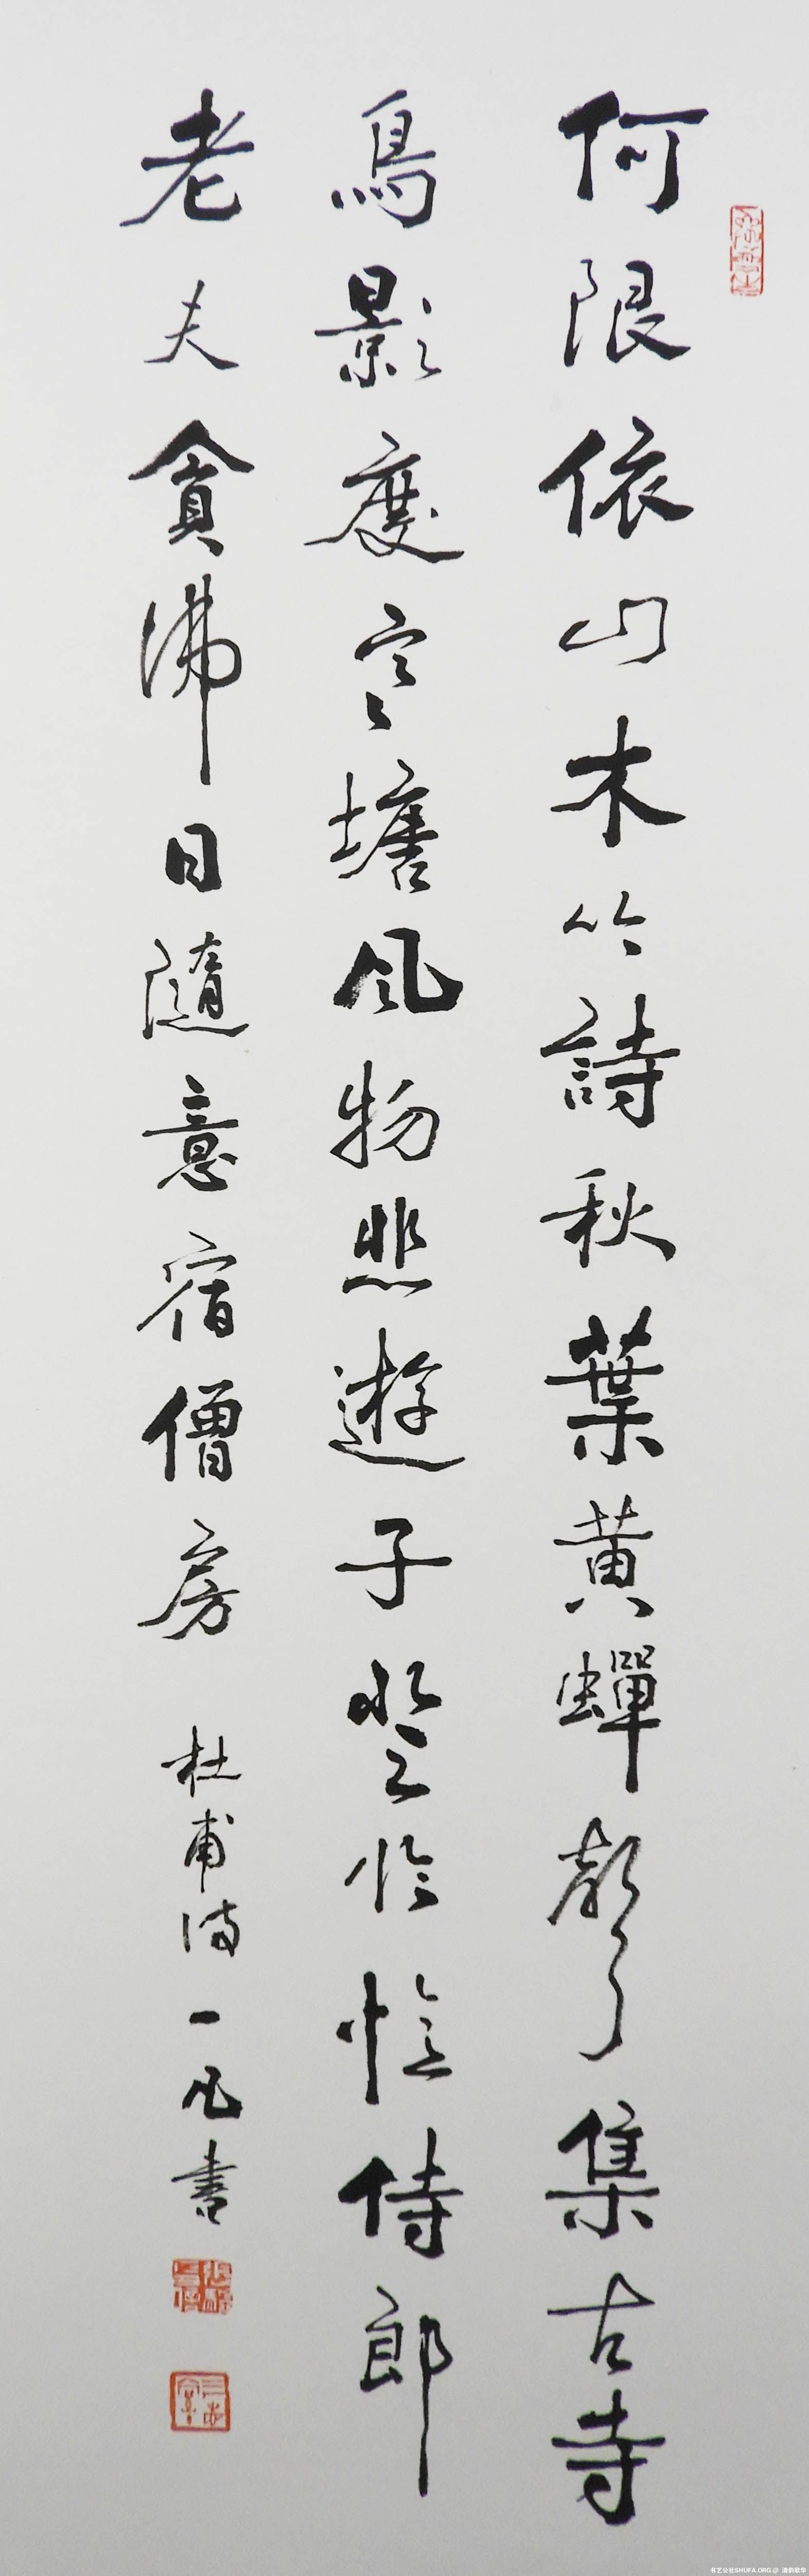 何限依山木吟詩秋葉黄蟬聲集古寺
鳥影度寒塘風物悲遊子登臨憶侍郎
老夫貪佛日隨意宿僧房
杜甫詩一凡書
书艺公社SHUFA.ORG @